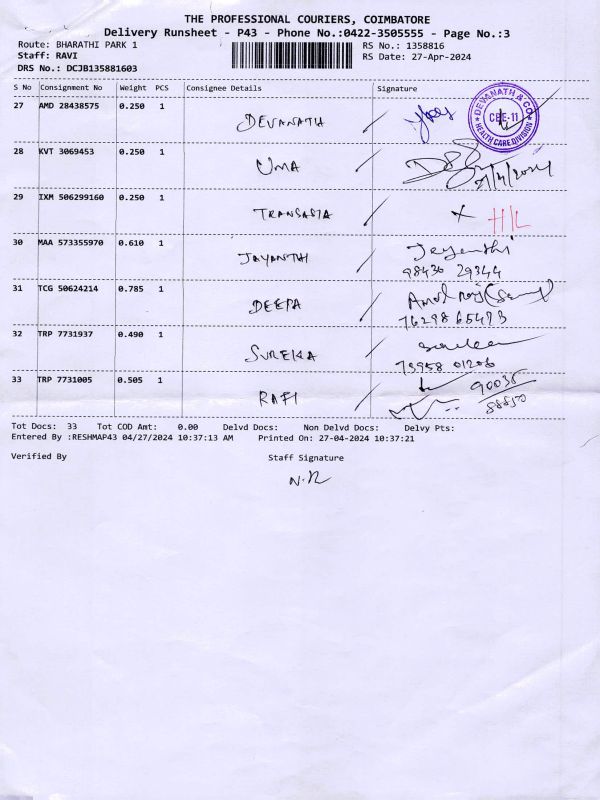 THE PROFESSIONAL COURIERS, COIMBATORE
Delivery Runsheet - P43 - Phone No.:0422-3505555 - Page No.:3
Route: BHARATHI PARK 1 RS No.: 1358816
Staff: RAVI RS Date: 27-Apr-2024
DRS No.: DCJB135881603
S No Consignment No Weight PCS Consignee Details Signature
27 AMD 28438575 0.250 1 DEVANATH DEVANATH & CO CBE-11 HEALTH CARE DIVISION
28 KVT 3069453 0.250 1 UMA
29 IXM 506299160 0.250 1 TRANSASIA H/L
30 MAA 573355970 0.610 1 JAYANTHI Jeyanthi
98430 29344
31 TCG 50624214 0.785 1 DEEPA
76298 65493
32 TRP 7731937 0.490 1 SUREKA
75958 01206
33 TRP 7731005 0.505 1 RAFI 90035
88850
Tot Docs: 33 Tot COD Amt: 0.00 Delvd Docs: Non Delvd Docs: Delvy Pts:
Entered By :RESHMAP43 04/27/2024 10:37:13 AM Printed On: 27-04-2024 10:37:21
Verified By Staff Signature
N.R